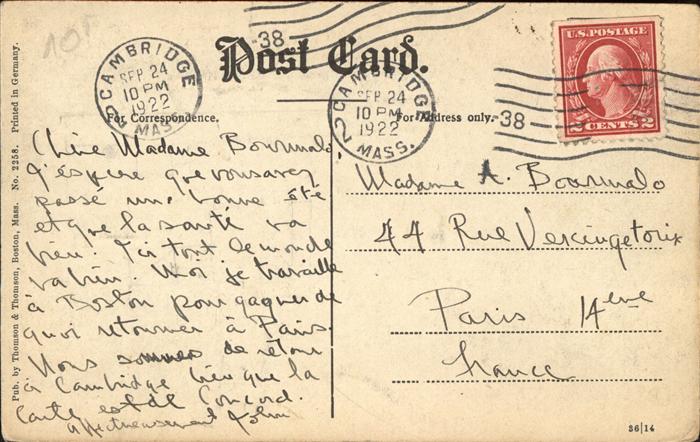 Post Card.
CAMBRIDGE
SEP 24
10 PM
1922
MASS.
2
38
CAMBRIDGE
SEP 24
10 PM
1922
MASS.
2
38
U.S. POSTAGE
2 CENTS 2
10F
For Correspondence.
For Address only.
Chère Madame Bourmalo
J'espère que vous avez
passé une bonne été
et que la santé va
bien. Ici tout le monde
va bien. Moi je travaille
à Boston pour gagner de
quoi retourner à Paris.
Nous sommes de retour
à Cambridge bien que la
carte est de Concord.
affectueusement John
Madame A. Bourmalo
44 Rue Vercingetorix
Paris 14eme
France
36|14
Pub. by Thomson & Thomson, Boston, Mass. No. 2258. Printed in Germany.